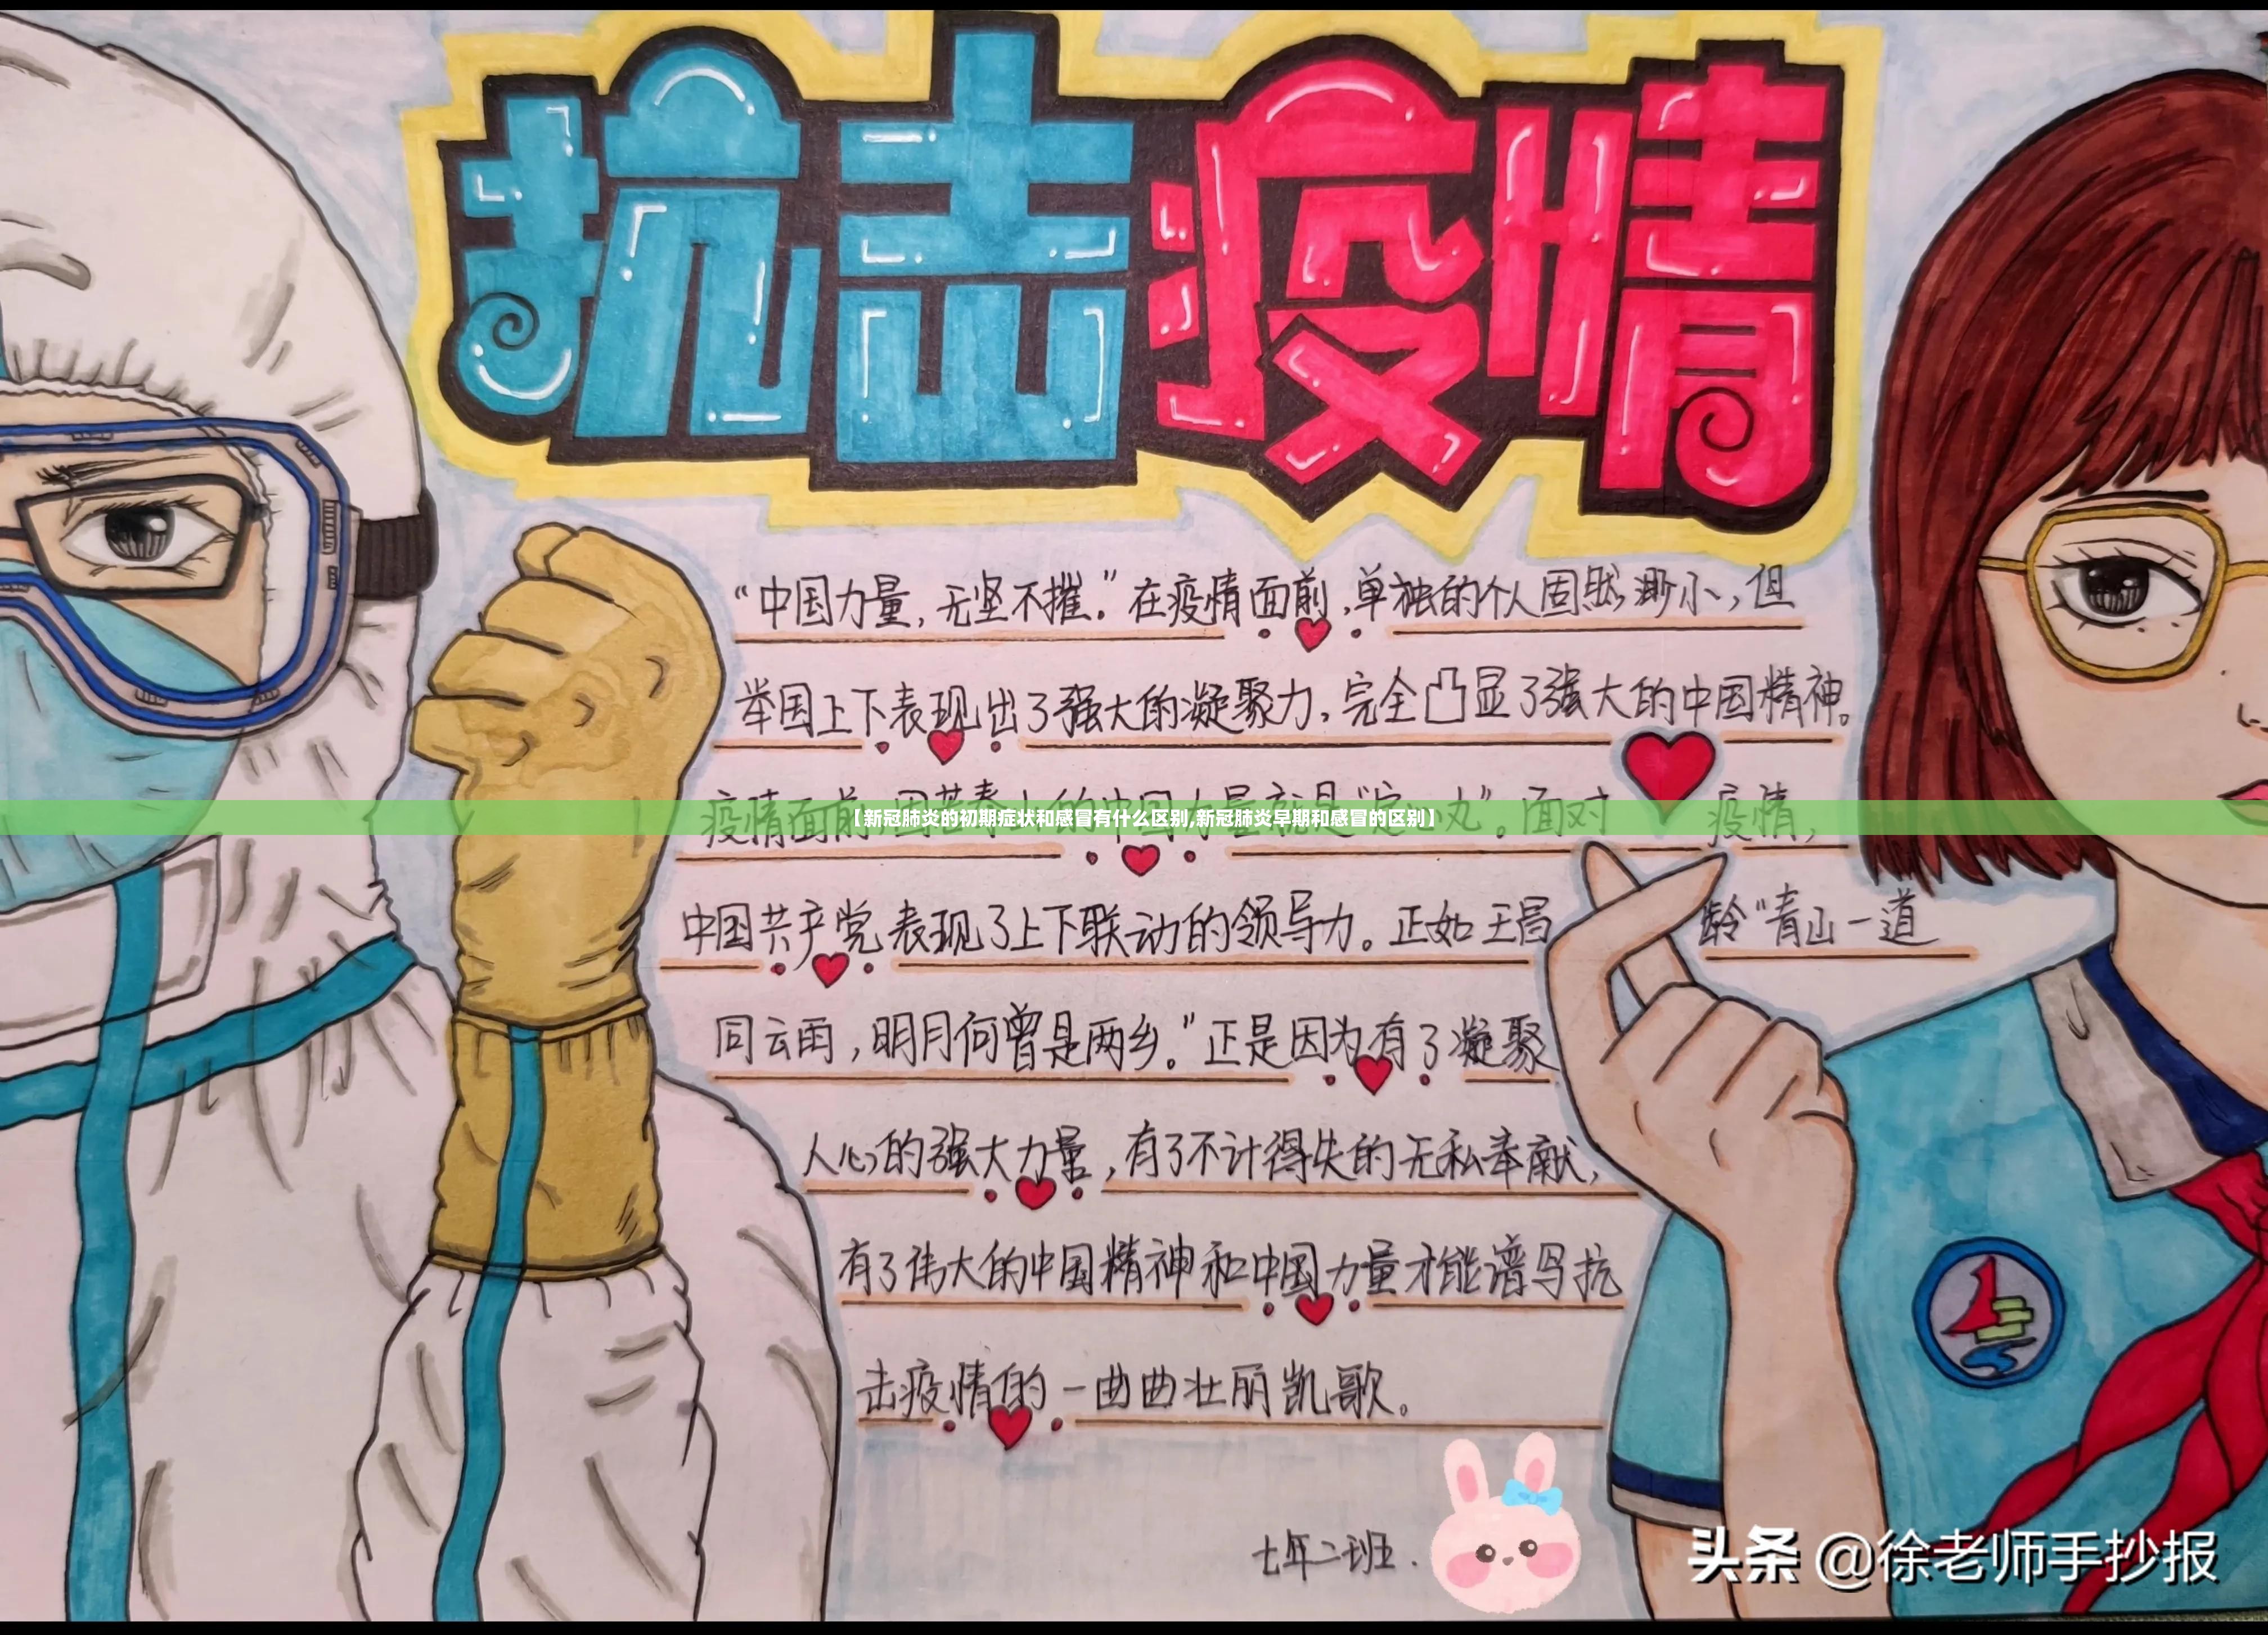 抗击疫情
“中国力量，无坚不摧。”在疫情面前，单独的个人固然渺小，但
举国上下表现出了强大的凝聚力，完全凸显了强大的中国精神。
疫情面前，因 的中国力量就是“定心丸”。面对 疫情，
【新冠肺炎的初期症状和感冒有什么区别,新冠肺炎早期和感冒的区别】
中国共产党表现了上下联动的领导力。正如王昌 龄“青山一道
同云雨，明月何曾是两乡。”正是因为有了凝聚
人心的强大力量，有了不计得失的无私奉献，
有了伟大的中国精神和中国力量才能谱写抗
击疫情的一曲曲壮丽凯歌。
七年二班.
头条 @徐老师手抄报